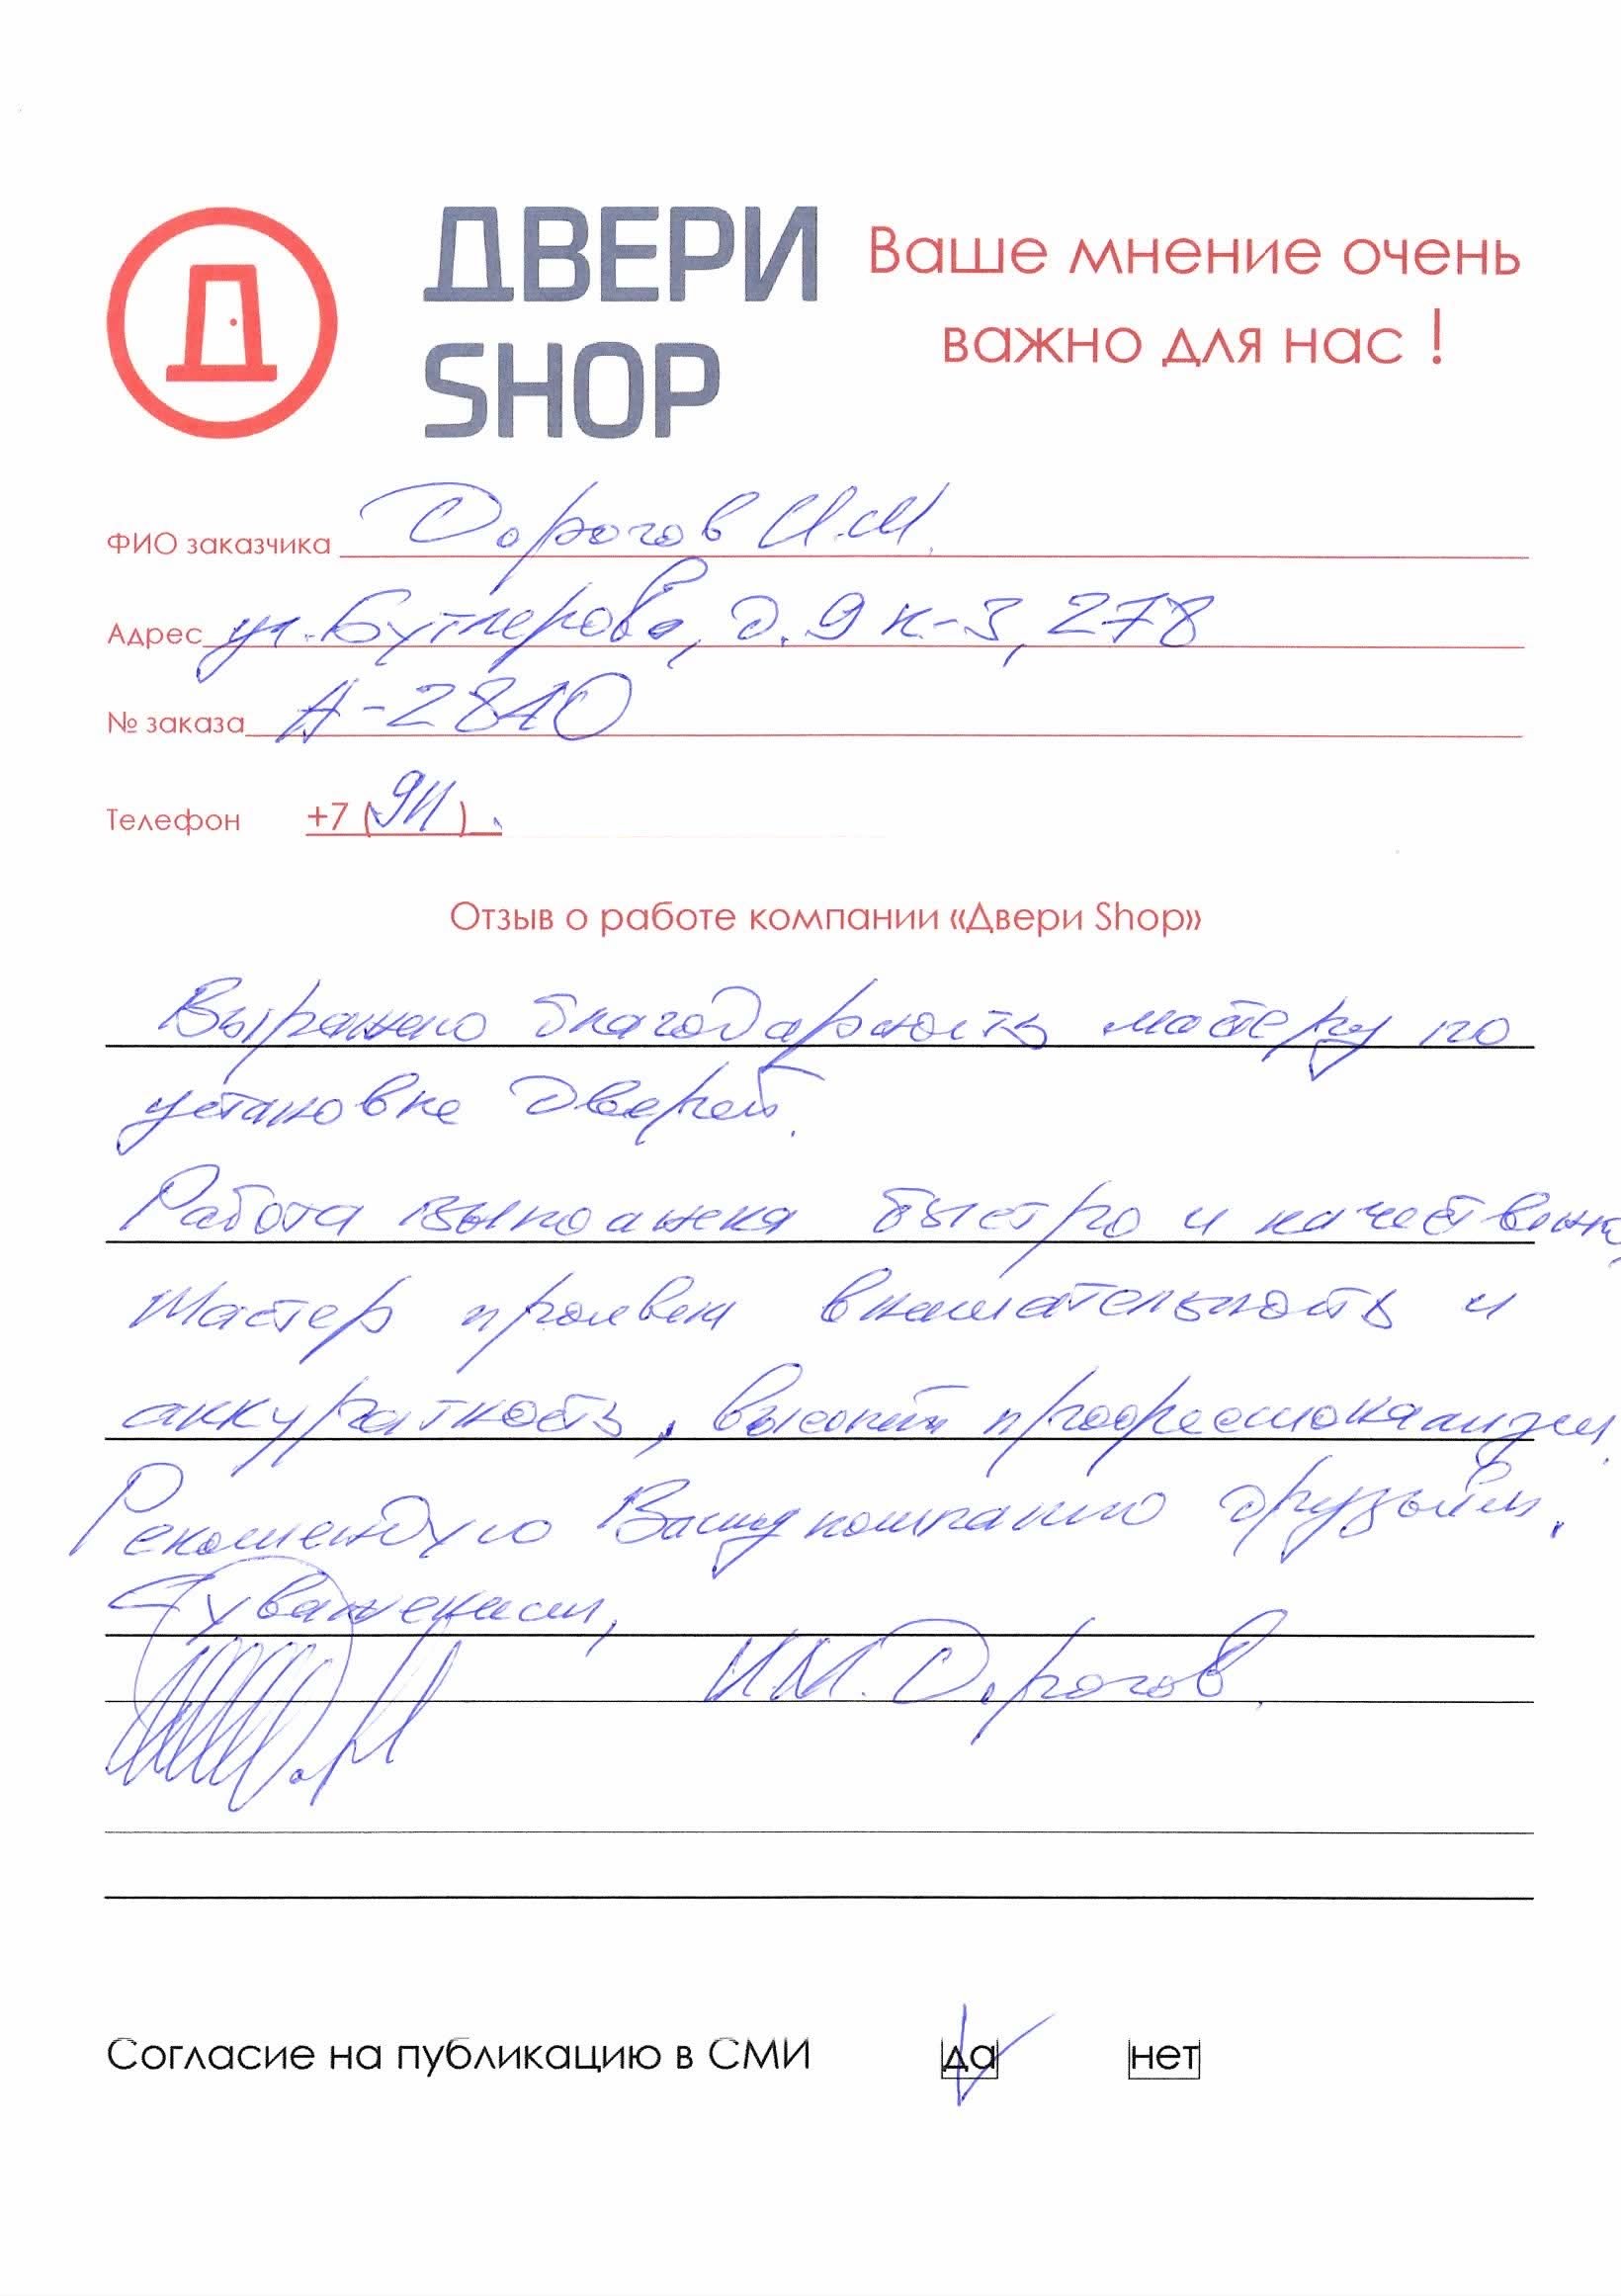 ДВЕРИ
SHOP
Ваше мнение очень
важно для нас !
ФИО заказчика Дорогов И.М.
Адрес ул. Бутлерова, д. 9 к-3, 278
№ заказа А-2810
Телефон +7 (911)
Отзыв о работе компании «Двери Shop»
Выражаю благодарность мастеру по
установке дверей.
Работа выполнена быстро и качественно,
Мастер проявил внимательность и
аккуратность, высокий профессионализм.
Рекомендую Вашу компанию друзьям.
С уважением,
И.М. Дорогов.
Согласие на публикацию в СМИ да нет